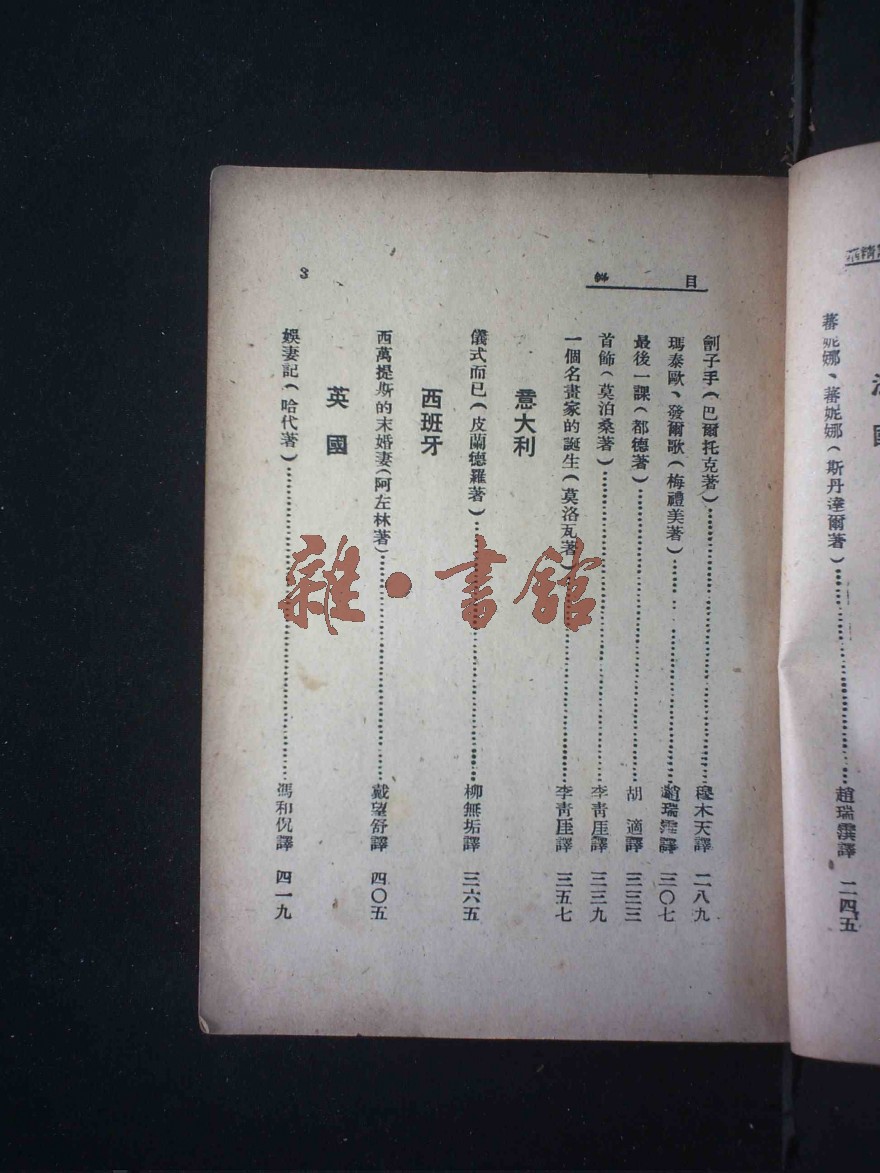 蕃妮娜、蕃妮娜(斯丹達爾著)……趙瑞霟譯 二四五
目
3
劊子手(巴爾托克著)……穆木天譯 二八九
瑪泰歐、發爾歌(梅禮美著)……趙瑞霟譯 三〇七
最後一課(都德著)……胡適譯 三三三
首飾(莫泊桑著)……李青厓譯 三三九
一個名畫家的誕生(莫洛瓦著)……李青厓譯 三五七
意大利
儀式而已(皮蘭德羅著)……柳無垢譯 三六五
西班牙
西萬提斯的未婚妻(阿左林著)……戴望舒譯 四〇五
英國
娛妻記(哈代著)……馮和侃譯 四一九
雜·書館